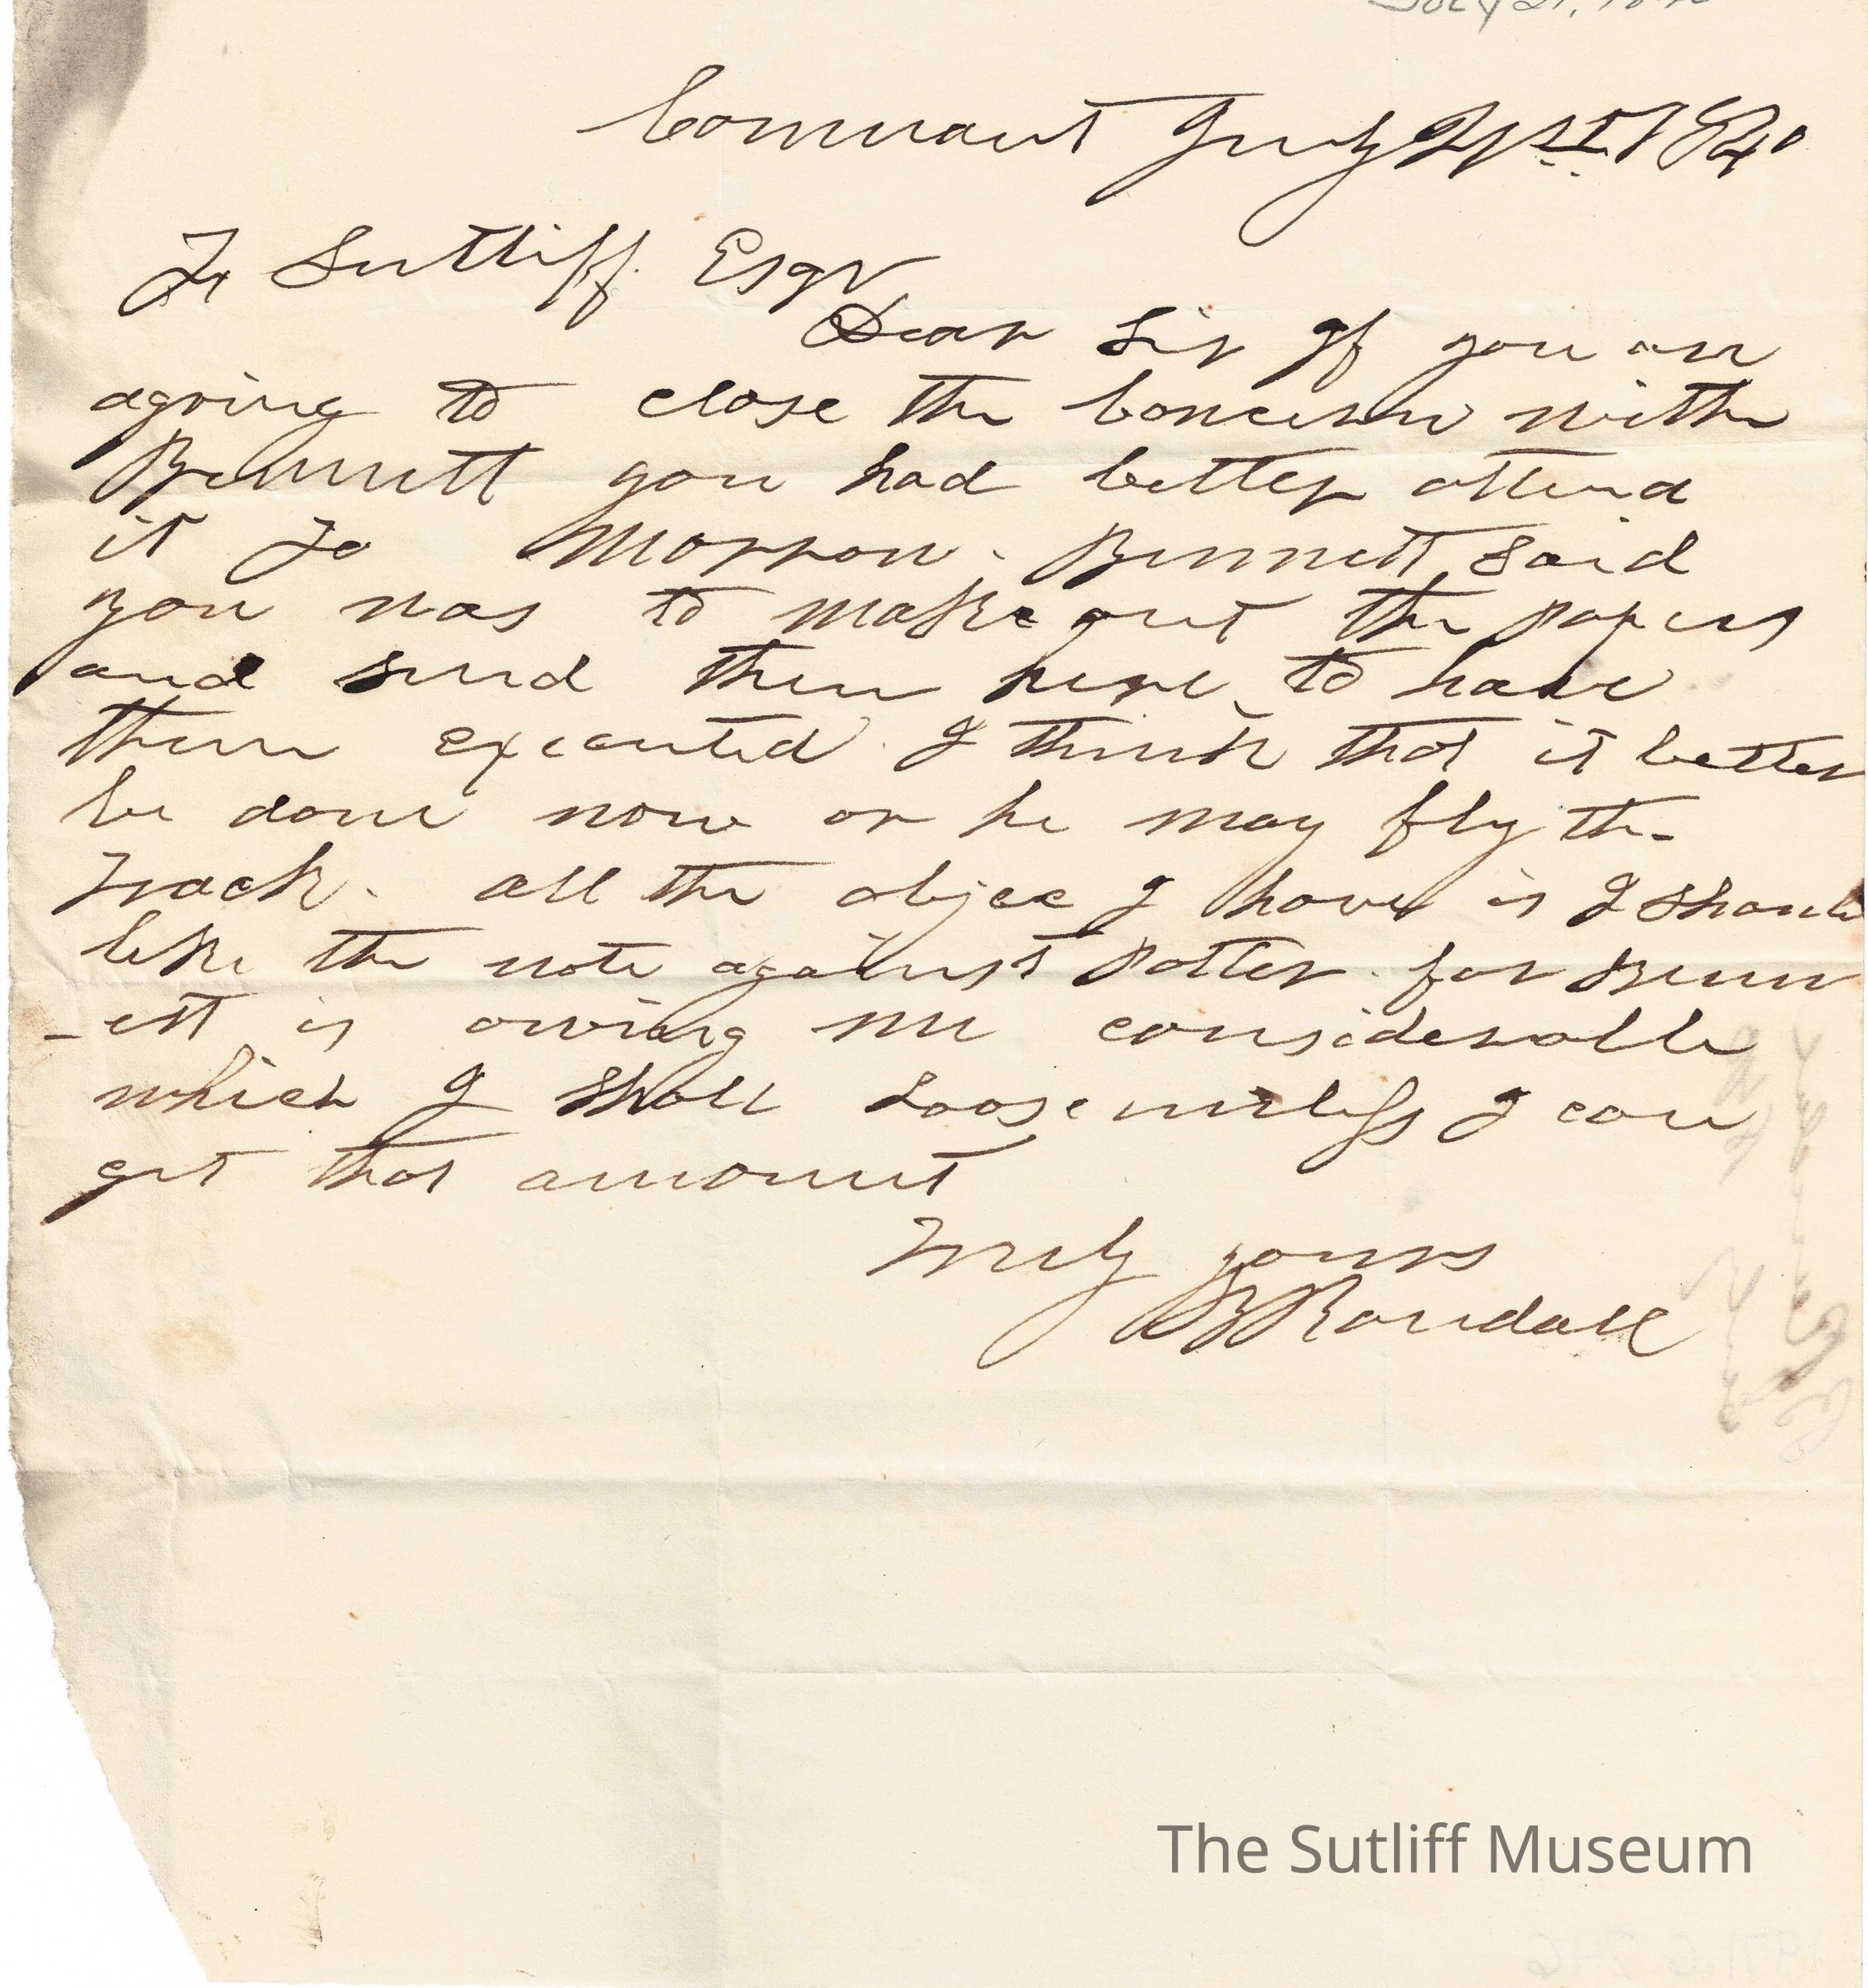 July 21, 18
Conneaut July 21st 1840
Sutliff Esqr
Dear Sir If you are
agoing to close the Concern with
Bennett you had better attend
it To Morrow. Bennett said
you was to make out the papers
and send them here to have
them executed. I think that it better
be done now or he may fly the
Track. all the objec I have is I should
like the note against Potter. for Benn
-ett is owing me considerable
which I shall Loose unless I can
get that amount
Truly yours
Randall
The Sutliff Museum